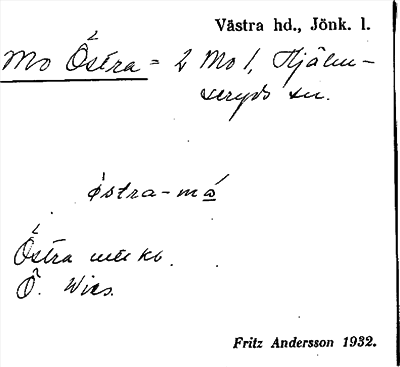 Västra hd., Jönk. l.
Mo Östra = 2 Mo 1, Hjälm-
seryds sn.
östra-må
Östra
Ö.
Fritz Andersson 1932.